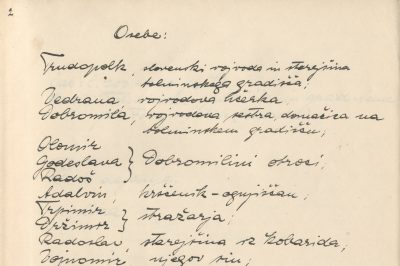 2
Osebe:
Trudopolk, slovenski vojvoda in starejšina
tolminskega gradišča,
Vedrana, vojvodova hčerka,
Dobromila, vojvodova sestra, domačica na
tolminskem gradišču;
Olomir
Godeslava } Dobromilini otroci,
Radoš
Adalvin, krščenik-ognjiščan;
Trpimir
Držimir } stražarja;
Radoslav, starejšina iz Kobarida;
Vojnomir njegov sin;